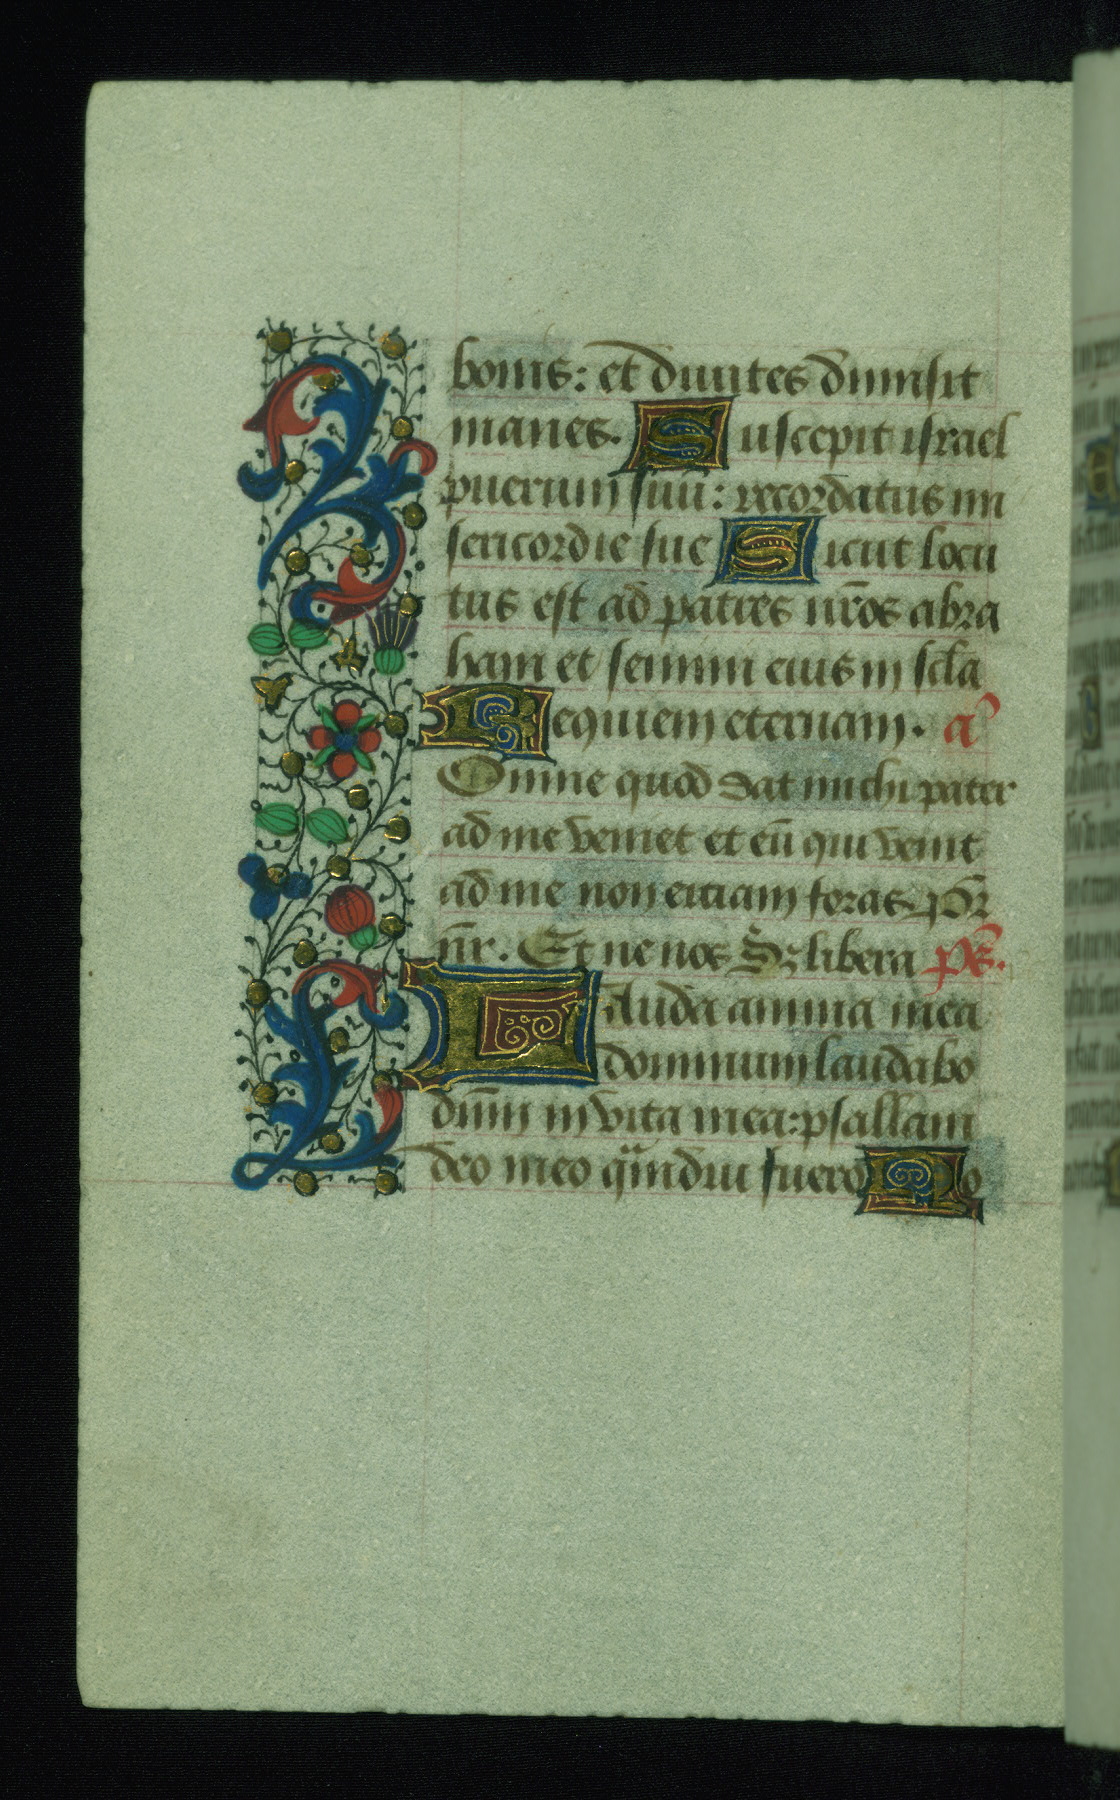 bonis: et diuites dimisit
inanes. Suscepit israel
puerum suu: recordatus mi
sericordie sue Sicut locu
tus est ad patres nr̄os abra
ham et semini eius in scl̄a
Requiem eternam. a
Omne quod dat michi pater
ad me veniet et eū qui venit
ad me non eitiam foras. Pr̄
nr̄. Et ne nos S̄z libera ps̄.
Lauda anima mea
dominum laudabo
dn̄m in vita mea: psallam
deo meo qm̄diu fuero No